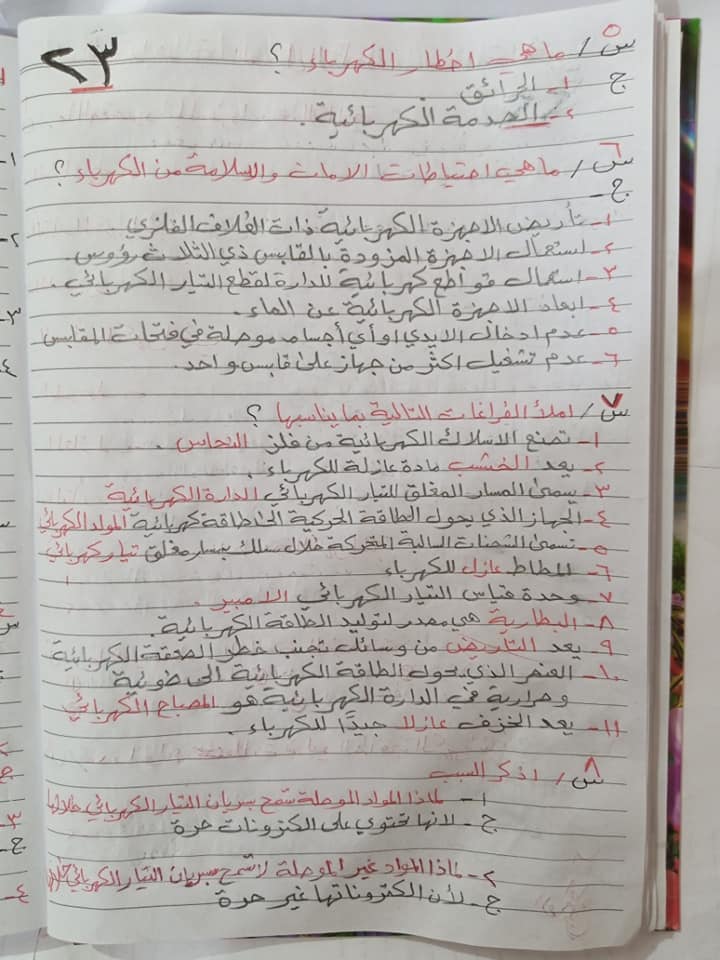 ٢٣
س٥/ ماهي اخطار الكهرباء ؟
ج ١- الحرائق .
٢- الصدمة الكهربائية .
س٦/ ماهي احتياطات الامان والسلامة من الكهرباء ؟
ج-
١- تأريض الاجهزة الكهربائية ذات الغلاف الفلزي
٢- استعمال الاجهزة المزودة بالقابس ذي الثلاث رؤوس .
٣- استعمال قواطع كهربائية للدارة لقطع التيار الكهربائي .
٤- ابعاد الاجهزة الكهربائية عن الماء .
٥- عدم ادخال الايدي او أي أجسام موصلة في فتحات المقابس
٦- عدم تشغيل اكثر من جهاز على قابس واحد .
س٧/ املأ الفراغات التالية بما يناسبها ؟
١- تصنع الاسلاك الكهربائية من فلز النحاس .
٢- يعد الخشب مادة عازلة للكهرباء .
٣- يسمى المسار المغلق للتيار الكهربائي الدارة الكهربائية
٤- الجهاز الذي يحول الطاقة الحركية الى طاقة كهربائية المولد الكهربائي
٥- تسمى الشحنات السالبة المتحركة خلال سلك بمسار مغلق تيار كهربائي
٦- المطاط عازل للكهرباء
٧- وحدة قياس التيار الكهربائي الامبير .
٨- البطارية هي مصدر لتوليد الطاقة الكهربائية .
٩- يعد التاريض من وسائل تجنب خطر الصعقة الكهربائية
١٠- العنصر الذي يحول الطاقة الكهربائية الى ضوئية
وحرارية في الدارة الكهربائية هو المصباح الكهربائي
١١- يعد الخزف عازلا جيدًا للكهرباء .
س٨/ اذكر السبب
١- لماذا المواد الموصلة تسمح بسريان التيار الكهربائي خلالها
ج- لانها تحتوي على الكترونات حرة
٢- لماذا المواد غير الموصلة لا تسمح بسريان التيار الكهربائي خلالها
ج- لأن الكتروناتها غير حرة